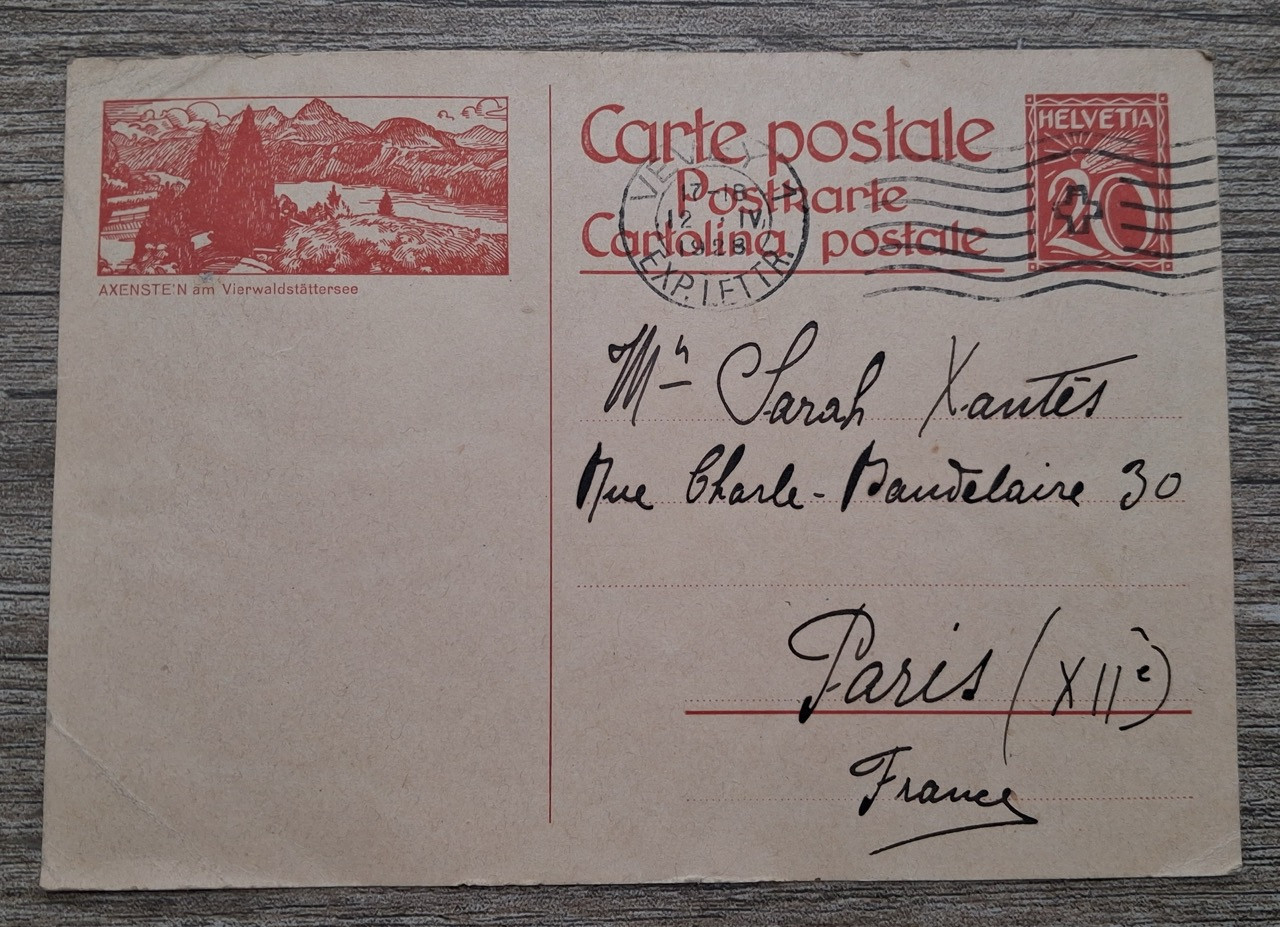 Carte postale
Postkarte
Cartolina postale
HELVETIA
20
VEVEY
17-18
12 . IV
1928
EXP. LETTR.
AXENSTEIN am Vierwaldstättersee
Sarah Xantès
Rue Charle-Baudelaire 30
Paris (XIIè)
France